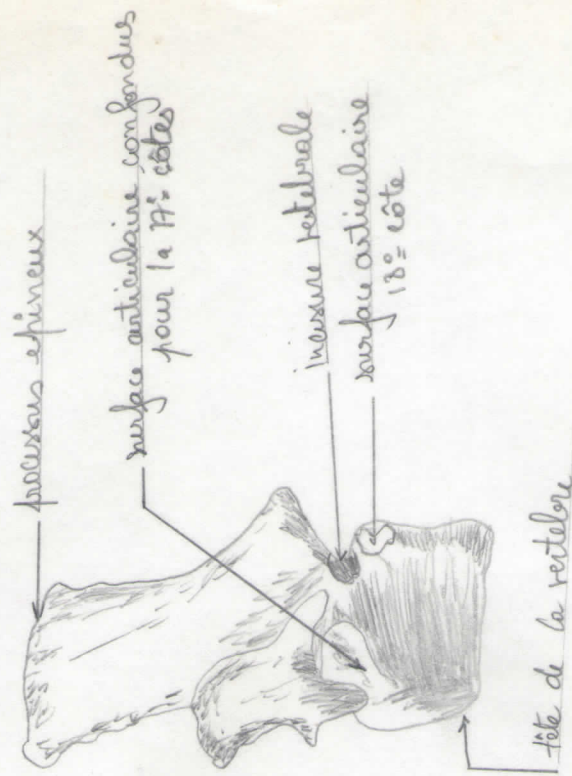 processus epineux
surface articulaire confondus
pour la 17e côtes
incisure vertebrale
surface articulaire
18e côte
tête de la vertebre